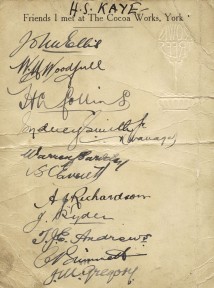 H.S. KAYE
Friends I met at The Cocoa Works, York
John Ellis
W M Woodfull
H Collins
Sydney Smith Jr
Manager
Warren Bardsley
S C Everett
A J Richardson
J. Ryder
T.J.E. Andrews
C V Grimmett
J.M. Gregory